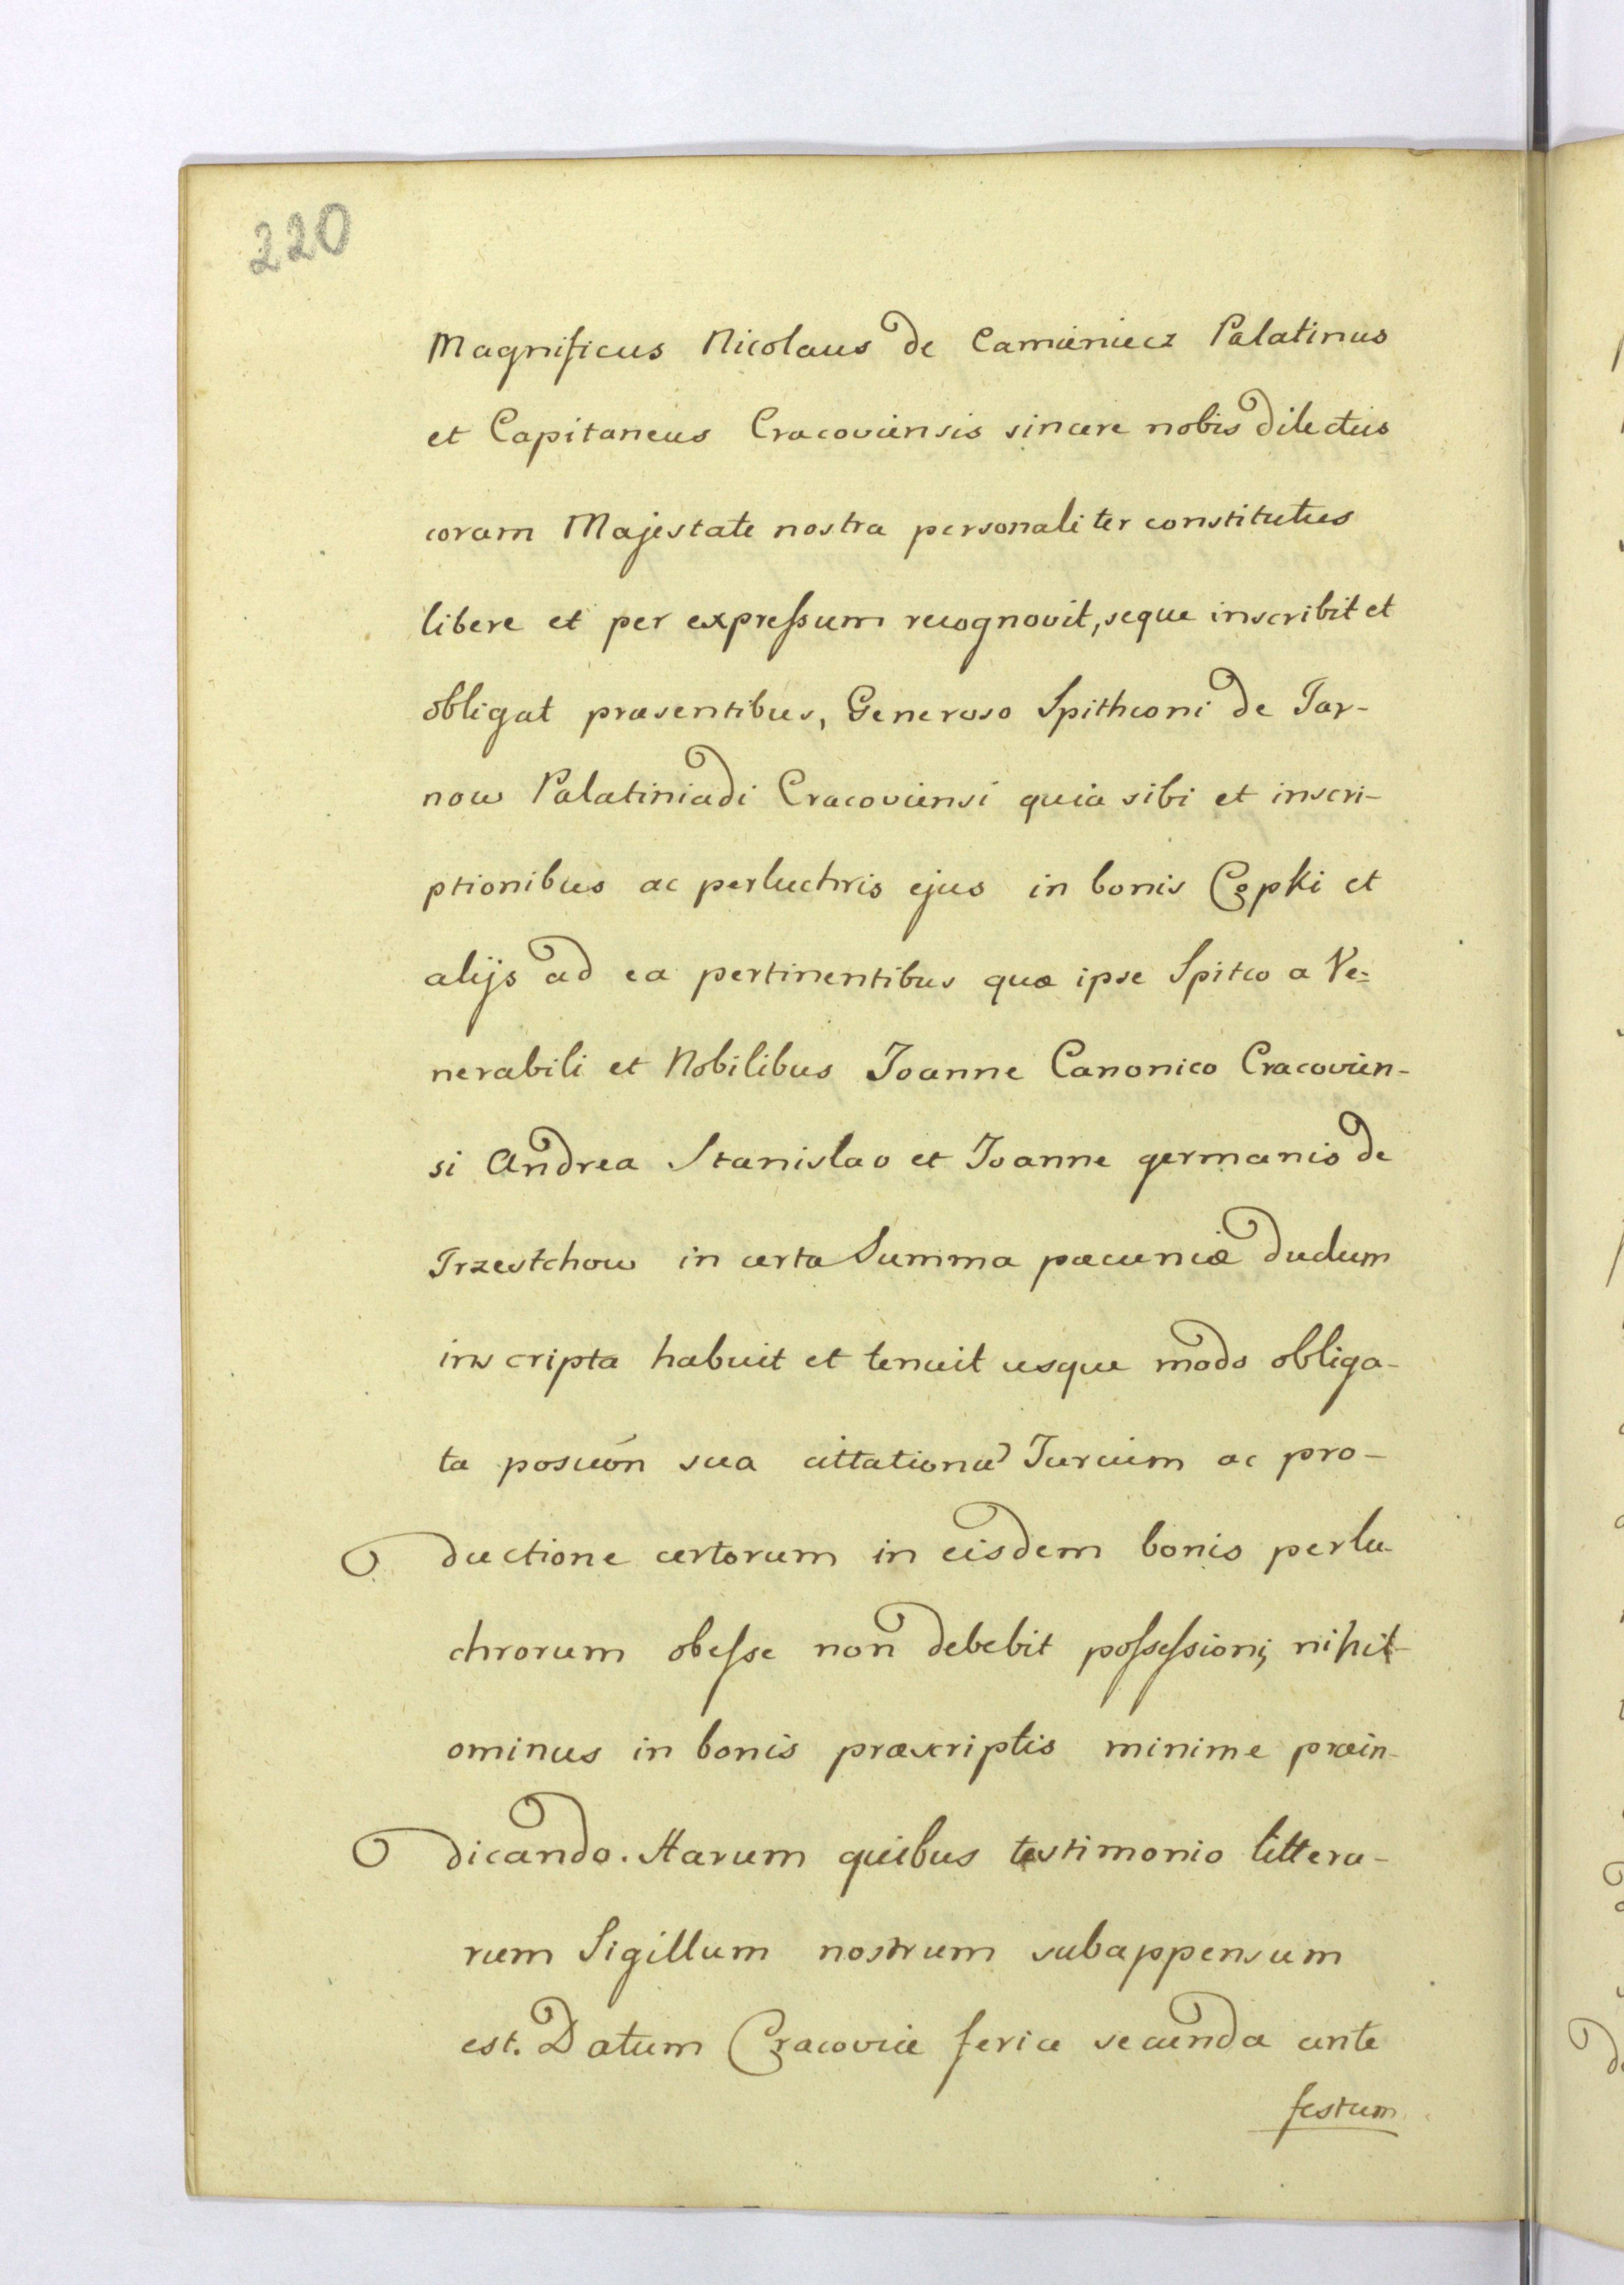 220
Magnificus Nicolaus de Camieniecz Palatinus
et Capitaneus Cracoviensis sincere nobis dilectus
coram Majestate nostra personaliter constitutus
libere et per expressum recognovit, seque inscribit et
obligat præsentibus, Generoso Spithconi de Tar-
now Palatiniadi Cracoviensi quia sibi et inscri-
ptionibus ac perluchris ejus in bonis Czpki et
alijs ad ea pertinentibus quæ ipse Spitco a Ve-
nerabili et Nobilibus Joanne Canonico Cracovien-
si Andrea Stanislao et Joanne germanis de
Trzestchow in certa Summa pecuniæ dudum
inscripta habuit et tenuit usque modo obliga-
ta sua cittatione Jurium ac pro-
ductione certorum in eisdem bonis perlu-
chrorum obesse non debebit possessioni, nihil-
ominus in bonis præscriptis minime præin-
dicando. Harum quibus testimonio littera-
rum Sigillum nostrum subappensum
est. Datum Cracoviæ feria secunda ante
festum